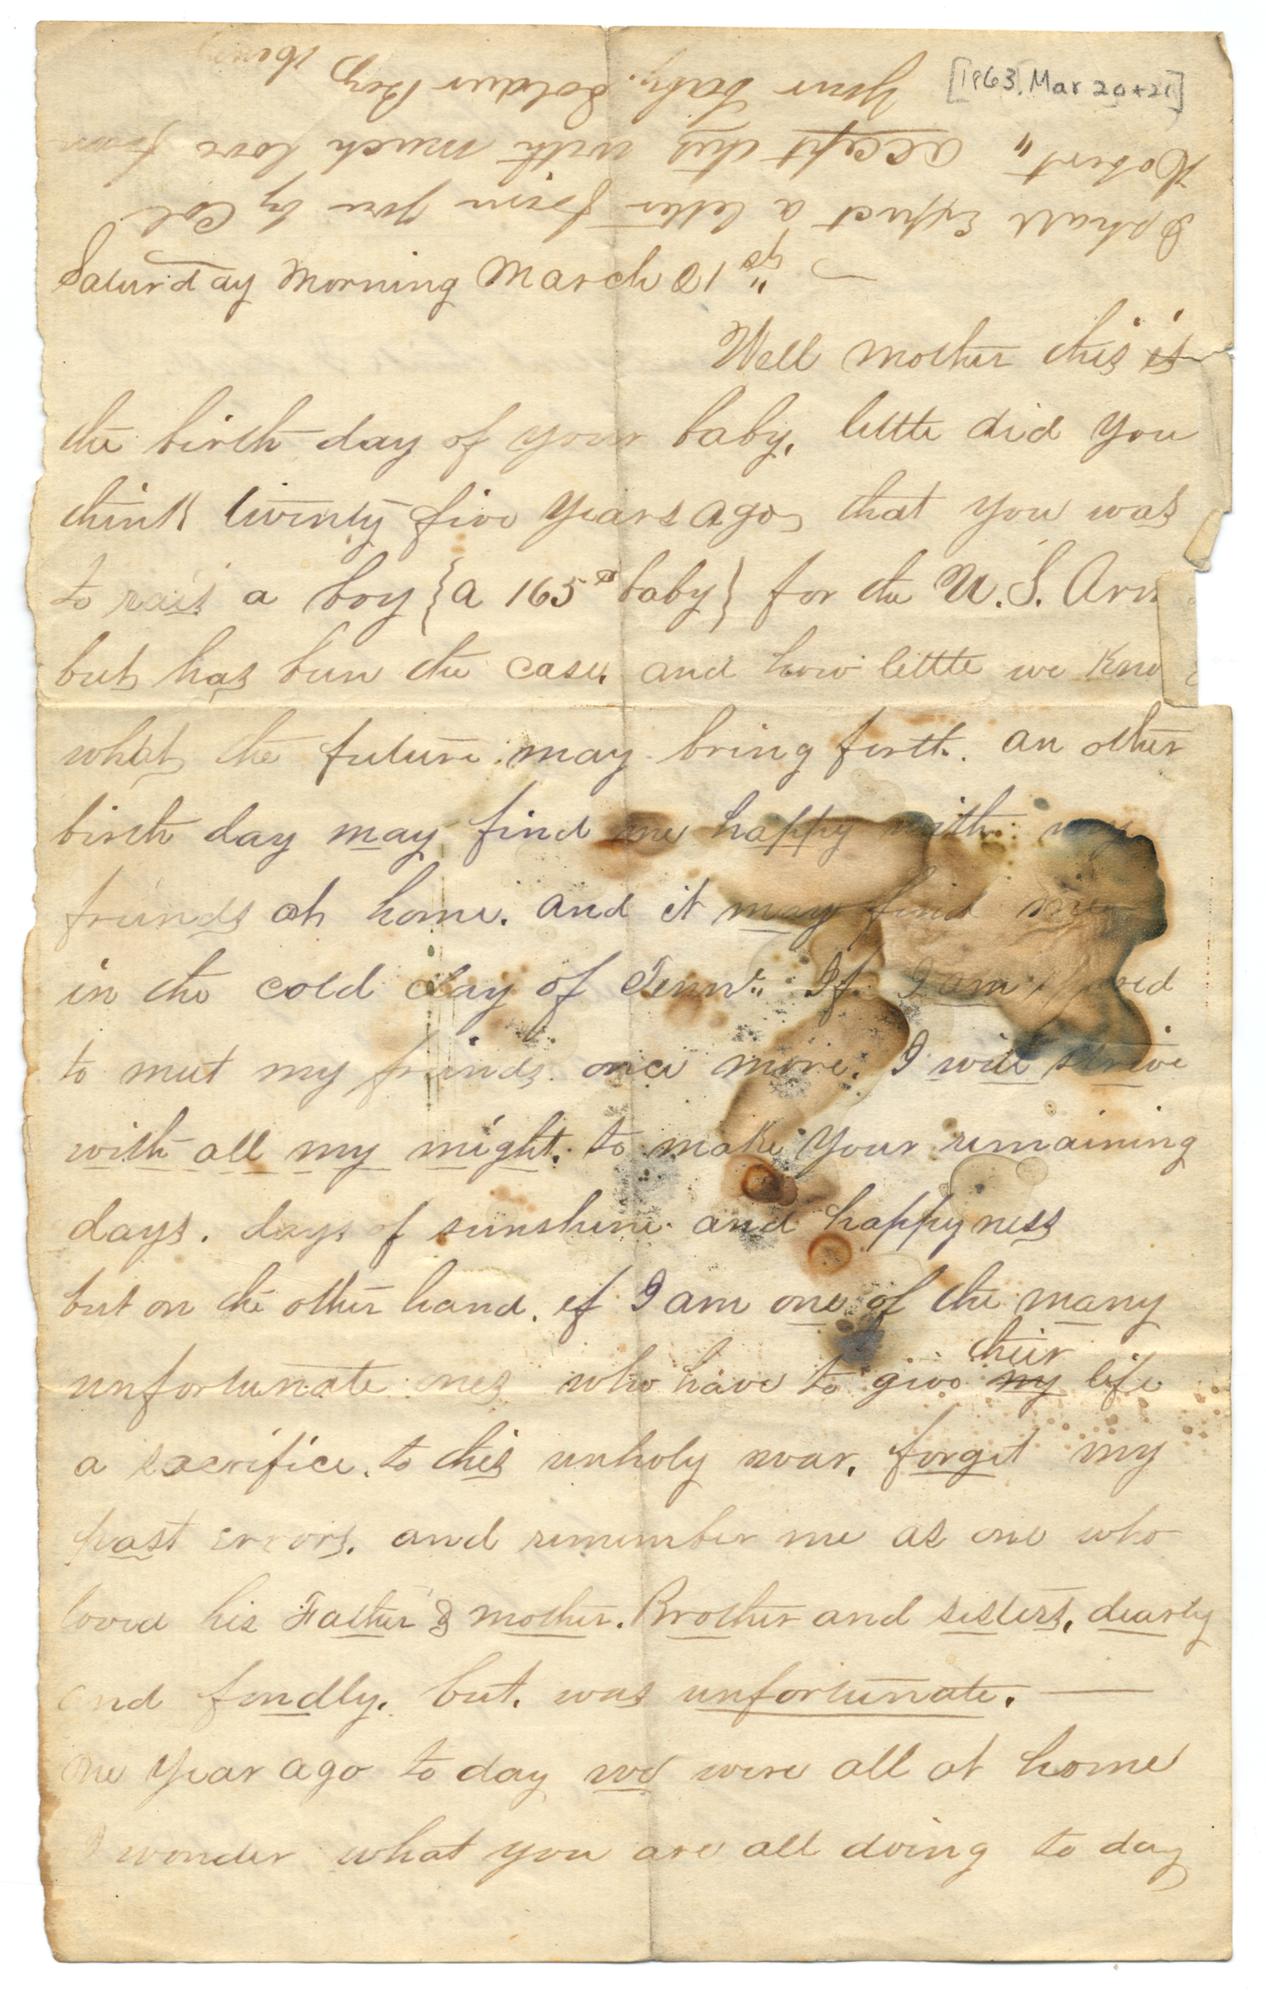 [1863, Mar 20+21]
I shall Expect a letter from you by Col
Robert" accept this with much love from
Your baby. Soldier Boy
Saturday Morning March 21st"
Well mother this is
the birth day of your baby, little did you
think twenty five years ago, that you was
to rais a boy {a 165 lb baby} for the U.S. Arm
but has bun the case, and how little we kno
what the future may bring forth. an other
birth day may find me happy with my
friends at home. and it may find me
in the cold clay of Tenn". If I am spared
to meet my friends once more. I will strive
with all my might. to make your remaining
days. days of sunshine and happyness
but on the other hand. if I am one of the many
unfortunate ones who have to give my their life
a sacrifice. to this unholy war, forget my
past errors. and remember me as one who
loved his Father & mother. Brother and sisters, dearly
and fondly. but. was unfortunate. —
one year ago to day we were all at home
I wonder what you are all doing to day